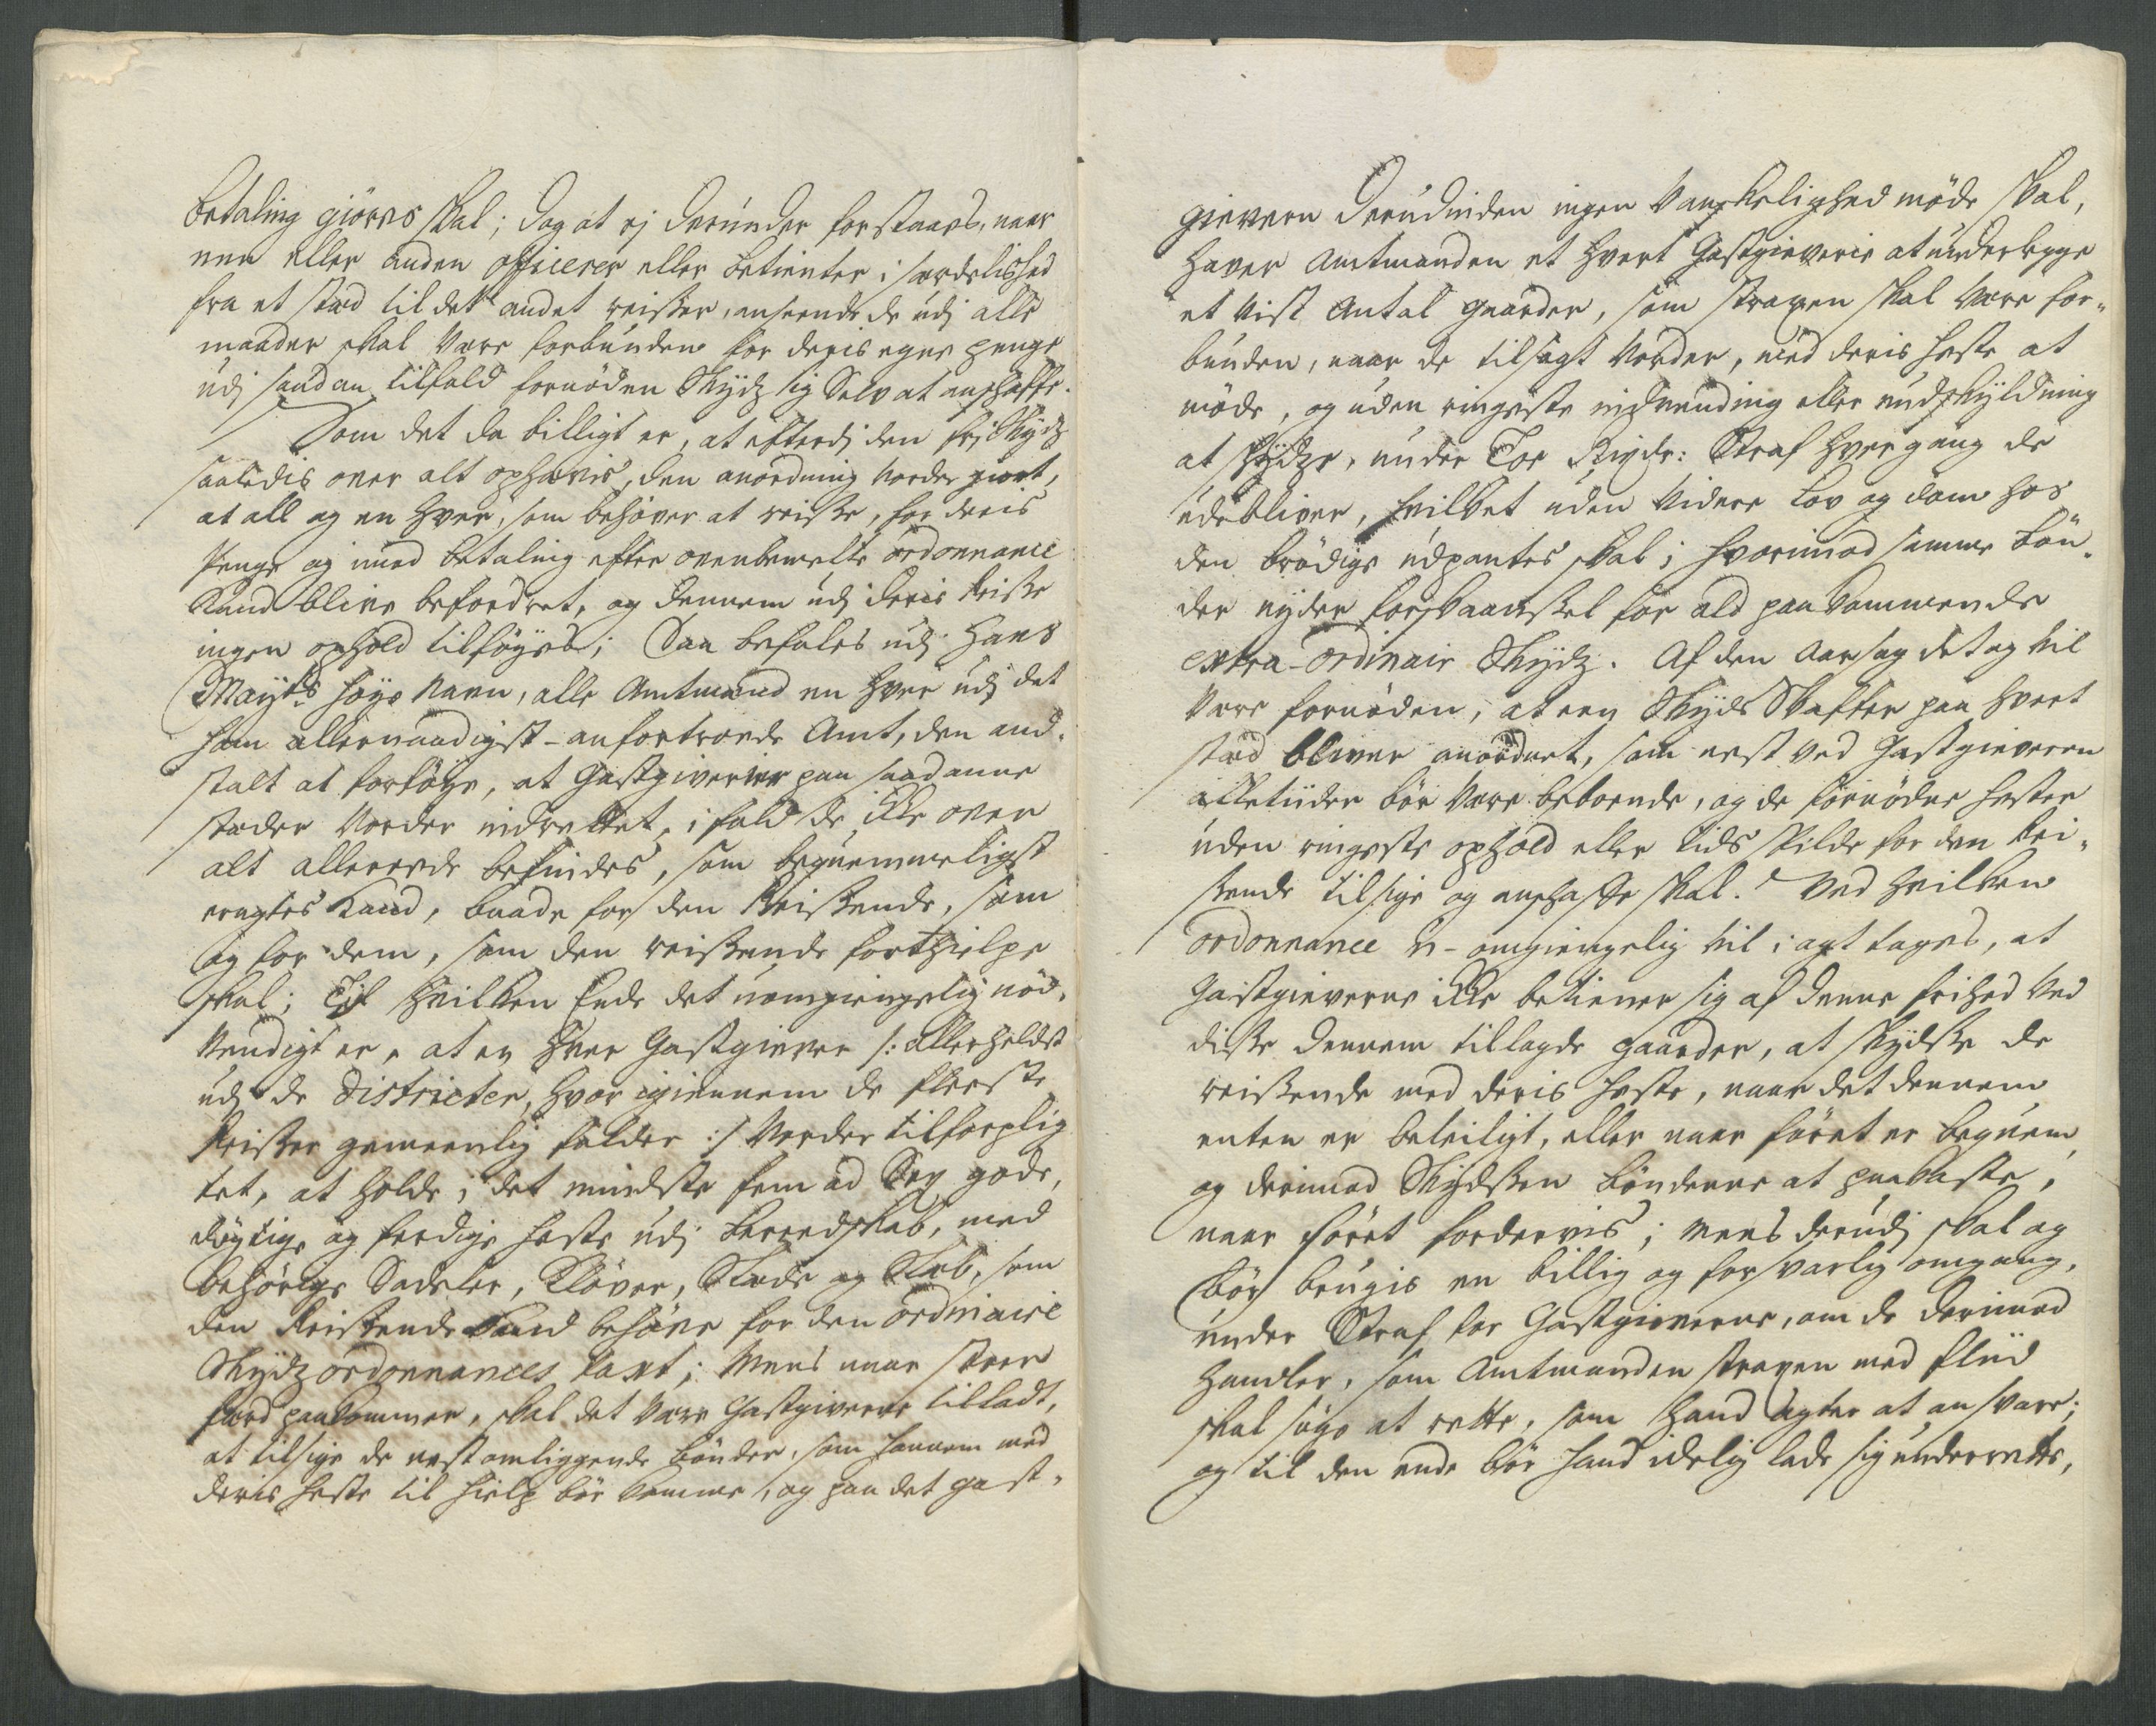 betaling giöres skal; dog at ej derunder forstaaes, naar
een eller anden officerer eller betienter i særdelished
fra et stæd til det andet reisser, anseende de udj alle
maader skal være forbunden for deris egne penge
udj saadan tilfald fornöden Skydz sig Selv at anschaffe.
Som det da billigt er, at efterdj den frj Skydz
saaledis over alt ophævis, den anordning vorder giort,
at all og en hver, som behöver at reisse, for deris
Penge og imod betaling efter ovenbemelte ordonnance
kand blive befordret, og dennem udj deris Reisse
ingen ophold tilföyes; Saa befales udj Hans
Mayts höye Navn, alle Amtmænd en hver udj det
ham allernaadigst-anfortroede Amt, den and-
stalt at forföye, at Gastgiverier paa saadanne
stæder vorder indrettet, i fald de ikke over
alt allereede befindes, som beqvemmeligst
eragtes kand, baade for den Reissende, som
og for dem, som den reissende forthielpe
skal; Til hvilken Ende det uomgiengelig nöd-
vendigt er, at en hver Gastgiever /: allerheldst
udj de districter, hvor igiennem de fleeste
Reisser gemeenlig falder :/ vorder tilforplig
tet, at holde i det mindste fem ad Sex gode,
dygtige og færdige heste udj beredskab, med
behörige Sadeler, Klöver, Slæde og Skab, som
den Reissende kand behöve for den ordinaire
Skydz ordonnances taxt; Mens naar stoor
færd paakommer, skal det være Gastgiverne tilladt,
at tilsige de næst omliggende bönder, som hannem med
deris heste til hielp bör komme, og paa det gast-
gieveren derudinden ingen vanskelighed möde skal,
haver Amtmanden et hvert Gastgieverie at underlegge
et vist Antal gaarder, som straxen skal være for-
bunden, naar de tilsagt vorder, med deris heste at
möde, og uden ringeste indvending eller undskyldning
at skydze, under Toe Rixdr: Straf hver gang de
udebliver, hvilket uden videre Lov og dom hos
den brödige udpantes skal; hvorimod samme bön-
der nyder forskaansel for ald paakommende
extra-ordinair Skydz. Af den Aarsag det og vil
være fornöden, at een Skyds Skaffer paa hvert
stæd bliver anordnet, som næst ved Gastgieveren
alletiider bör være beboende, og de fornödne hester
uden ringeste ophold eller tids spilde for den Rei-
sende tilsige og anschaffe skal. Ved hvilken
ordonnance u-omgiengelig vil i agt tages, at
Gastgieverne ikke betiener sig af denne frihed ved
disse dennem tillagde gaarder, at skydsse de
reissende med deris heste, naar det dennem
enten er beleiligt, eller naar föret er beqvem,
og derimod Skydssen bönderne at paakaste,
naar föret fordervis; Mens derudj skal og
bör brugis en billig og forsvarlig omgang,
under Straf for Gastgieverne, om de derimod
handler, som Amtmanden straxen med fliid
skal söge at rette, som hand agter at ansvare;
og til den ende bör hand idelig lade sig underrette,